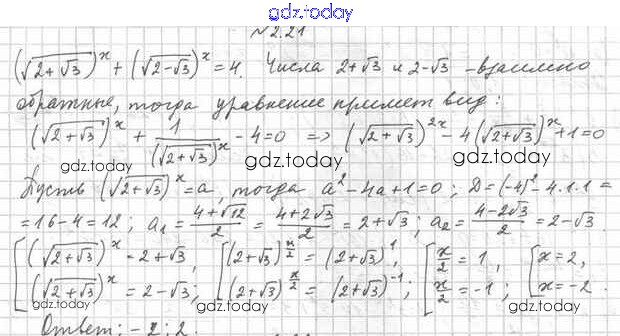 gdz.today
№2.21
(√(2+√3))^x + (√(2-√3))^x = 4. Числа 2+√3 и 2-√3 – взаимно
gdz.today
gdz.today
обратные, тогда уравнение примет вид:
(√(2+√3))^x + 1/(√(2+√3))^x - 4=0 => (√(2+√3))^2x - 4(√(2+√3))^x + 1=0
gdz.today
gdz.today
gdz.today
Пусть (√(2+√3))^x = a, тогда a² - 4a + 1 = 0; D = (-4)² - 4·1·1 =
= 16 - 4 = 12; a₁ = (4+√12)/2 = (4+2√3)/2 = 2+√3; a₂ = (4-2√3)/2 = 2-√3.
[(√(2+√3))^x = 2+√3, [(2+√3)^(x/2) = (2+√3)^1, [x/2 = 1, [x = 2,
(√(2+√3))^x = 2-√3; (2+√3)^(x/2) = (2+√3)^-1; x/2 = -1; x = -2.
gdz.today
gdz.today
gdz.today
Ответ: -2; 2.